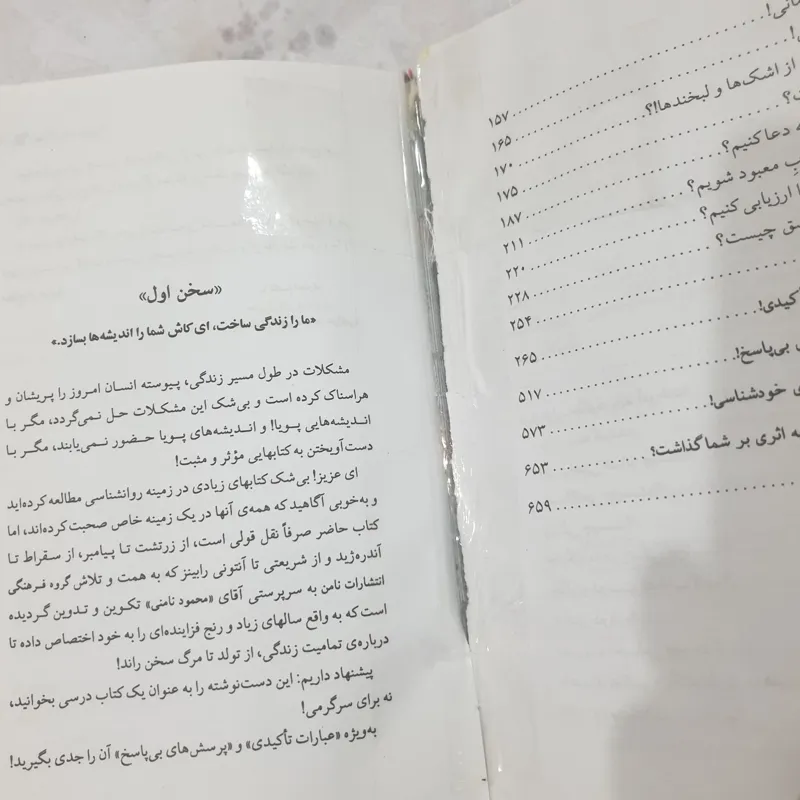 از اشک‌ها و لبخندها!؟
۱۵۷
۱۶۵
۱۷۰
دعا کنیم؟
۱۷۵
معبود شویم؟
۱۸۷
ارزیابی کنیم؟
۲۱۱
چیست؟
۲۲۰
۲۲۸
۲۵۴
بی‌پاسخ!
۲۶۵
۵۱۷
خودشناسی!
۵۷۳
اثری بر شما گذاشت؟
۶۵۳
۶۵۹
«سخن اول»
«ما را زندگی ساخت، ای کاش شما را اندیشه‌ها بسازد.»
مشکلات در طول مسیر زندگی، پیوسته انسان امروز را پریشان و
هراسناک کرده است و بی‌شک این مشکلات حل نمی‌گردد، مگر با
اندیشه‌هایی پویا! و اندیشه‌های پویا حضور نمی‌یابند، مگر با
دست‌آویختن به کتابهایی مؤثر و مثبت!
ای عزیز! بی‌شک کتابهای زیادی در زمینه روانشناسی مطالعه کرده‌اید
و به‌خوبی آگاهید که همه‌ی آنها در یک زمینه خاص صحبت کرده‌اند، اما
کتاب حاضر صرفاً نقل قولی است، از زرتشت تا پیامبر، از سقراط تا
آندره‌ژید و از شریعتی تا آنتونی رابینز که به همت و تلاش گروه فرهنگی
انتشارات نامن به سرپرستی آقای «محمود نامنی» تکوین و تدوین گردیده
است که به واقع سالهای زیاد و رنج فزاینده‌ای را به خود اختصاص داده تا
درباره‌ی تمامیت زندگی، از تولد تا مرگ سخن راند!
پیشنهاد داریم: این دست‌نوشته را به عنوان یک کتاب درسی بخوانید،
نه برای سرگرمی!
به‌ویژه «عبارات تأکیدی» و «پرسش‌های بی‌پاسخ» آن را جدی بگیرید!